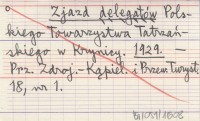 Zjazd delegatów Pols-
kiego Towarzystwa Tatrzań-
skiego w Krynicy. 1929. —
Prz. Zdroj.-Kąpiel. i Przem. Turyst.
18, nr 1.